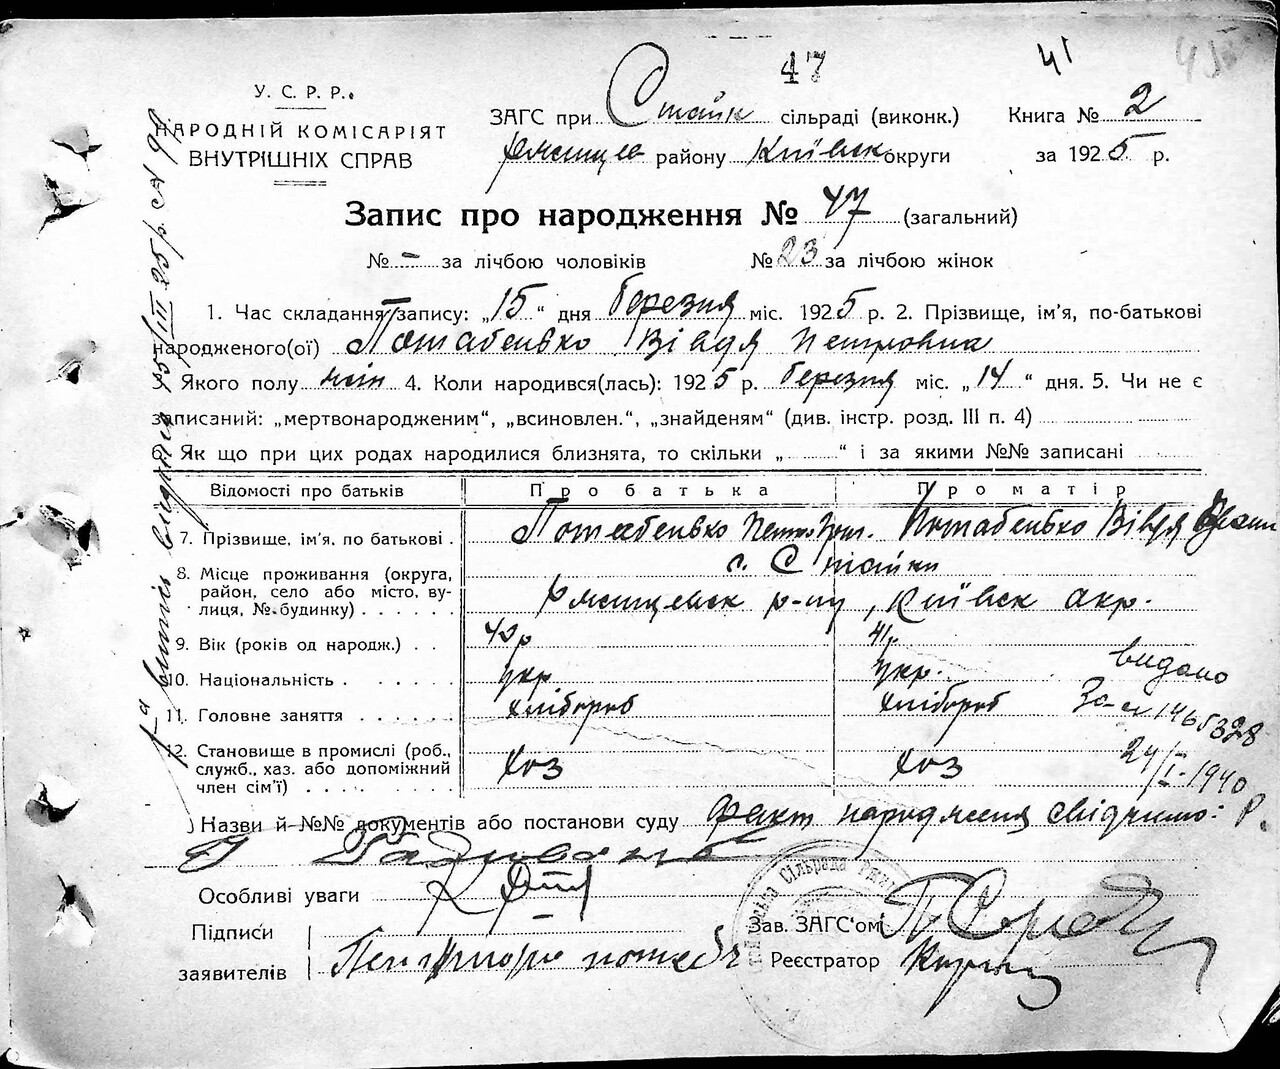 47
41
У. С. Р. Р.
НАРОДНІЙ КОМІСАРІЯТ
ВНУТРІШНІХ СПРАВ
ЗАГС при Стайк сільраді (виконк.)
району Київськ округи
Книга № 2
за 1925 р.
Запис про народження № 47 (загальний)
№ – за лічбою чоловіків № 23 за лічбою жінок
1. Час складання запису: „15“ дня березня міс. 1925 р. 2. Прізвище, ім'я, по-батькові
народженого(ої) Потабенько Вівдя Петровна
3. Якого полу жін 4. Коли народився(лась): 1925 р. березня міс. „14“ дня. 5. Чи не є
записаний: „мертвонародженим“, „всиновлен.“, „знайденям“ (див. інстр. розд. III п. 4)
6. Як що при цих родах народилися близнята, то скільки „ “ і за якими №№ записані
Відомості про батьків Про батька Про матір
7. Прізвище, ім'я, по батькові Потабенько Петро Потабенько Вівдя
8. Місце проживання (округа, район, село або місто, вулиця, № будинку)
с. Стайки
Ржищевск р-ну, Київськ окр.
9. Вік (років од народж.) 42р 41р
10. Національність укр укр.
11. Головне заняття хлібороб хлібороб
12. Становище в промислі (роб., служб., хаз. або допоміжний член сім'ї) хоз хоз
видано
За № 1465328
24/I-1940
р.
Назви й №№ документів або постанови суду факт народження свідчимо:
Особливі уваги
Підписи
заявителів
Зав. ЗАГС'ом
Реєстратор